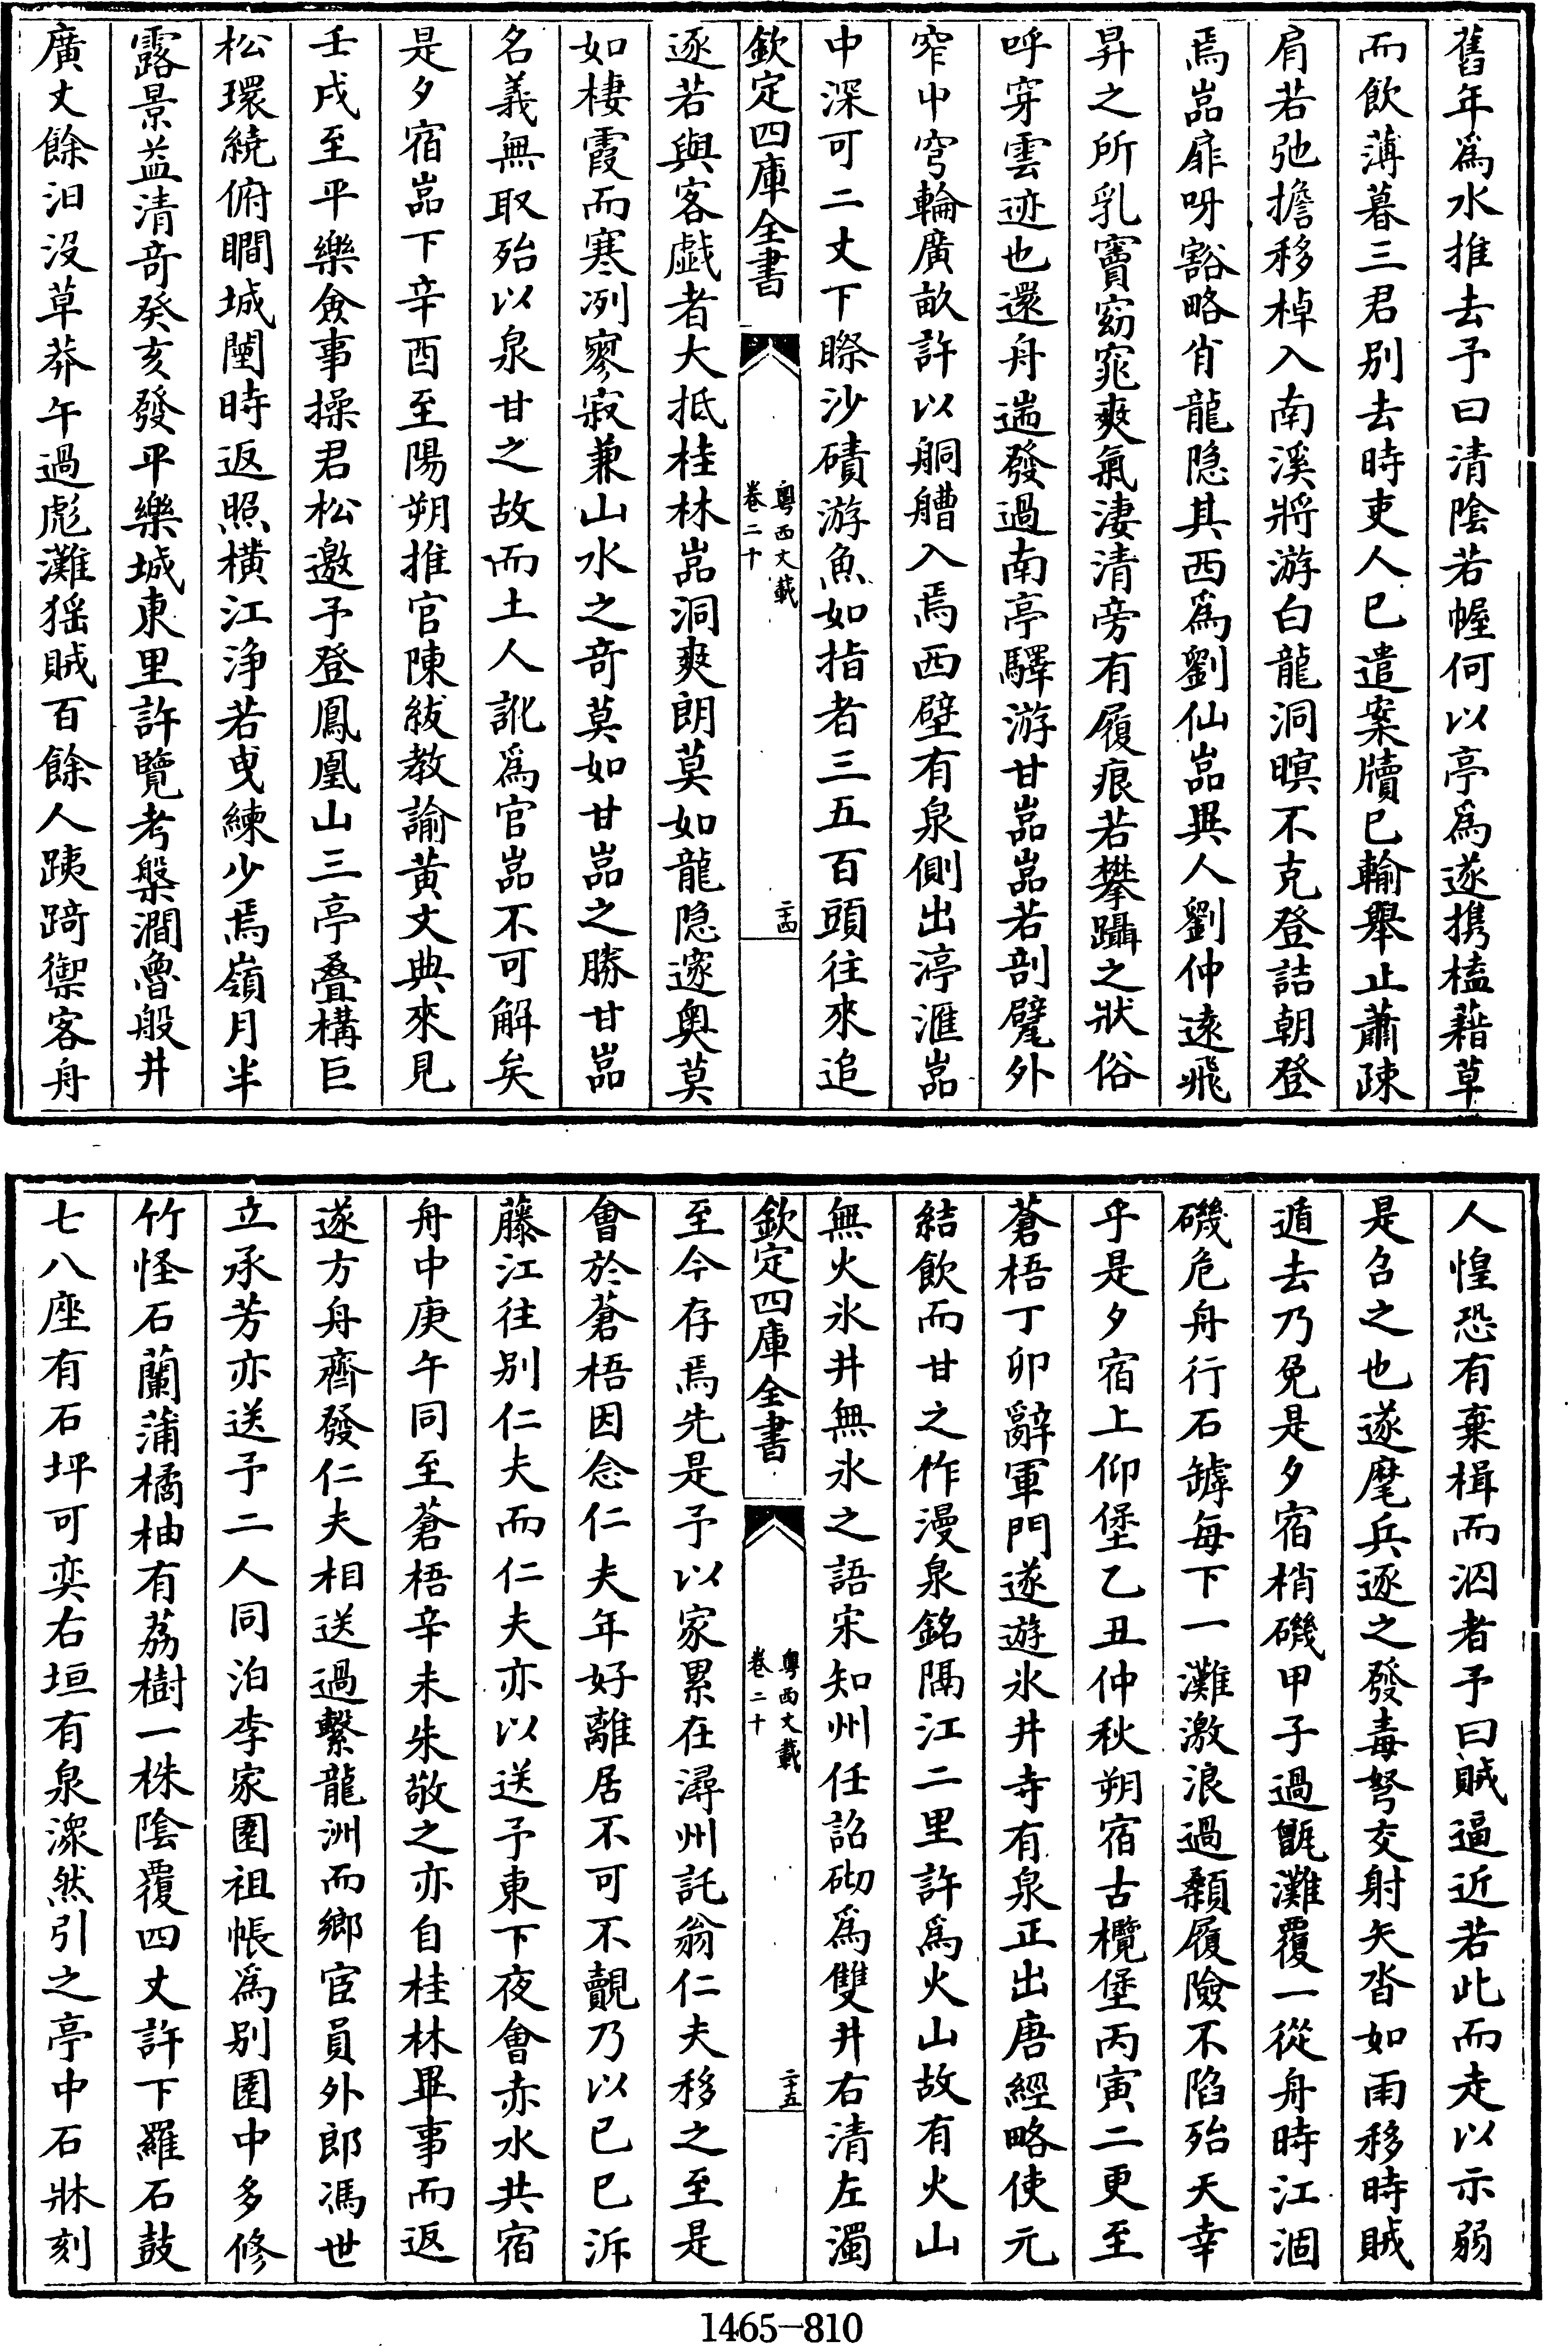 舊年爲水推去予曰清陰若幄何以亭爲遂携榼藉草
而飲薄暮三君别去時吏人已遣案牘已輸舉止蕭疎
肩若弛擔移棹入南溪將游白龍洞暝不克登詰朝登
焉嵓扉呀豁略肖龍隠其西爲劉仙嵓異人劉仲逺飛
昇之所乳竇窈窕爽氣淒清旁有履痕若攀躡之狀俗
呼穿雲迹也還舟遄發過南亭驛游甘嵓嵓若剖甓外
窄中穹輪廣畝許以舸艚入焉西壁有泉側出渟滙嵓
中深可二丈下睽沙磧游魚如指者三五百頭往來追
欽定四庫全書
粵西文載
卷二十
二十四
逐若與客戯者大抵桂林嵓洞爽朗莫如龍隠邃奥莫
如棲霞而寒冽寥寂兼山水之竒莫如甘嵓之勝甘嵓
名義無取殆以泉甘之故而土人訛爲官嵓不可解矣
是夕宿嵓下辛酉至陽朔推官陳紱教諭黄文典來見
壬戌至平樂僉事操君松邀予登鳳凰山三亭叠構巨
松環繞俯瞷城闉時返照横江浄若曵練少焉嶺月半
露景益清竒癸亥發平樂城東里許覽考槃澗魯般井
廣丈餘汩沒草莽午過彪灘猺賊百餘人跠踦禦客舟
人惶恐有棄楫而泅者予曰賊逼近若此而走以示弱
是召之也遂麾兵逐之發毒弩交射矢沓如雨移時賊
遁去乃免是夕宿梢磯甲子過甑灘覆一從舟時江涸
磯危舟行石罅每下一灘激浪過顙履險不陷殆天幸
乎是夕宿上仰堡乙丑仲秋朔宿古欖堡丙寅二更至
蒼梧丁卯辭軍門遂遊氷井寺有泉正出唐經略使元
結飲而甘之作漫泉銘隔江二里許爲火山故有火山
無火氷井無氷之語宋知州任詔砌爲雙井右清左濁
欽定四庫全書
粵西文載
卷二十
二十五
至今存焉先是予以家累在潯州託翁仁夫移之至是
會於蒼梧因念仁夫年好離居不可不覿乃以已巳泝
藤江往别仁夫而仁夫亦以送予東下夜會赤水共宿
舟中庚午同至蒼梧辛未朱敬之亦自桂林畢事而返
遂方舟齊發仁夫相送過繫龍洲而鄉宦員外郎馮世
立承芳亦送予二人同泊李家園祖帳爲别園中多修
竹怪石蘭蒲橘柚有荔樹一株陰覆四丈許下羅石鼓
七八座有石坪可奕右垣有泉潨然引之亭中石牀刻
1465-810